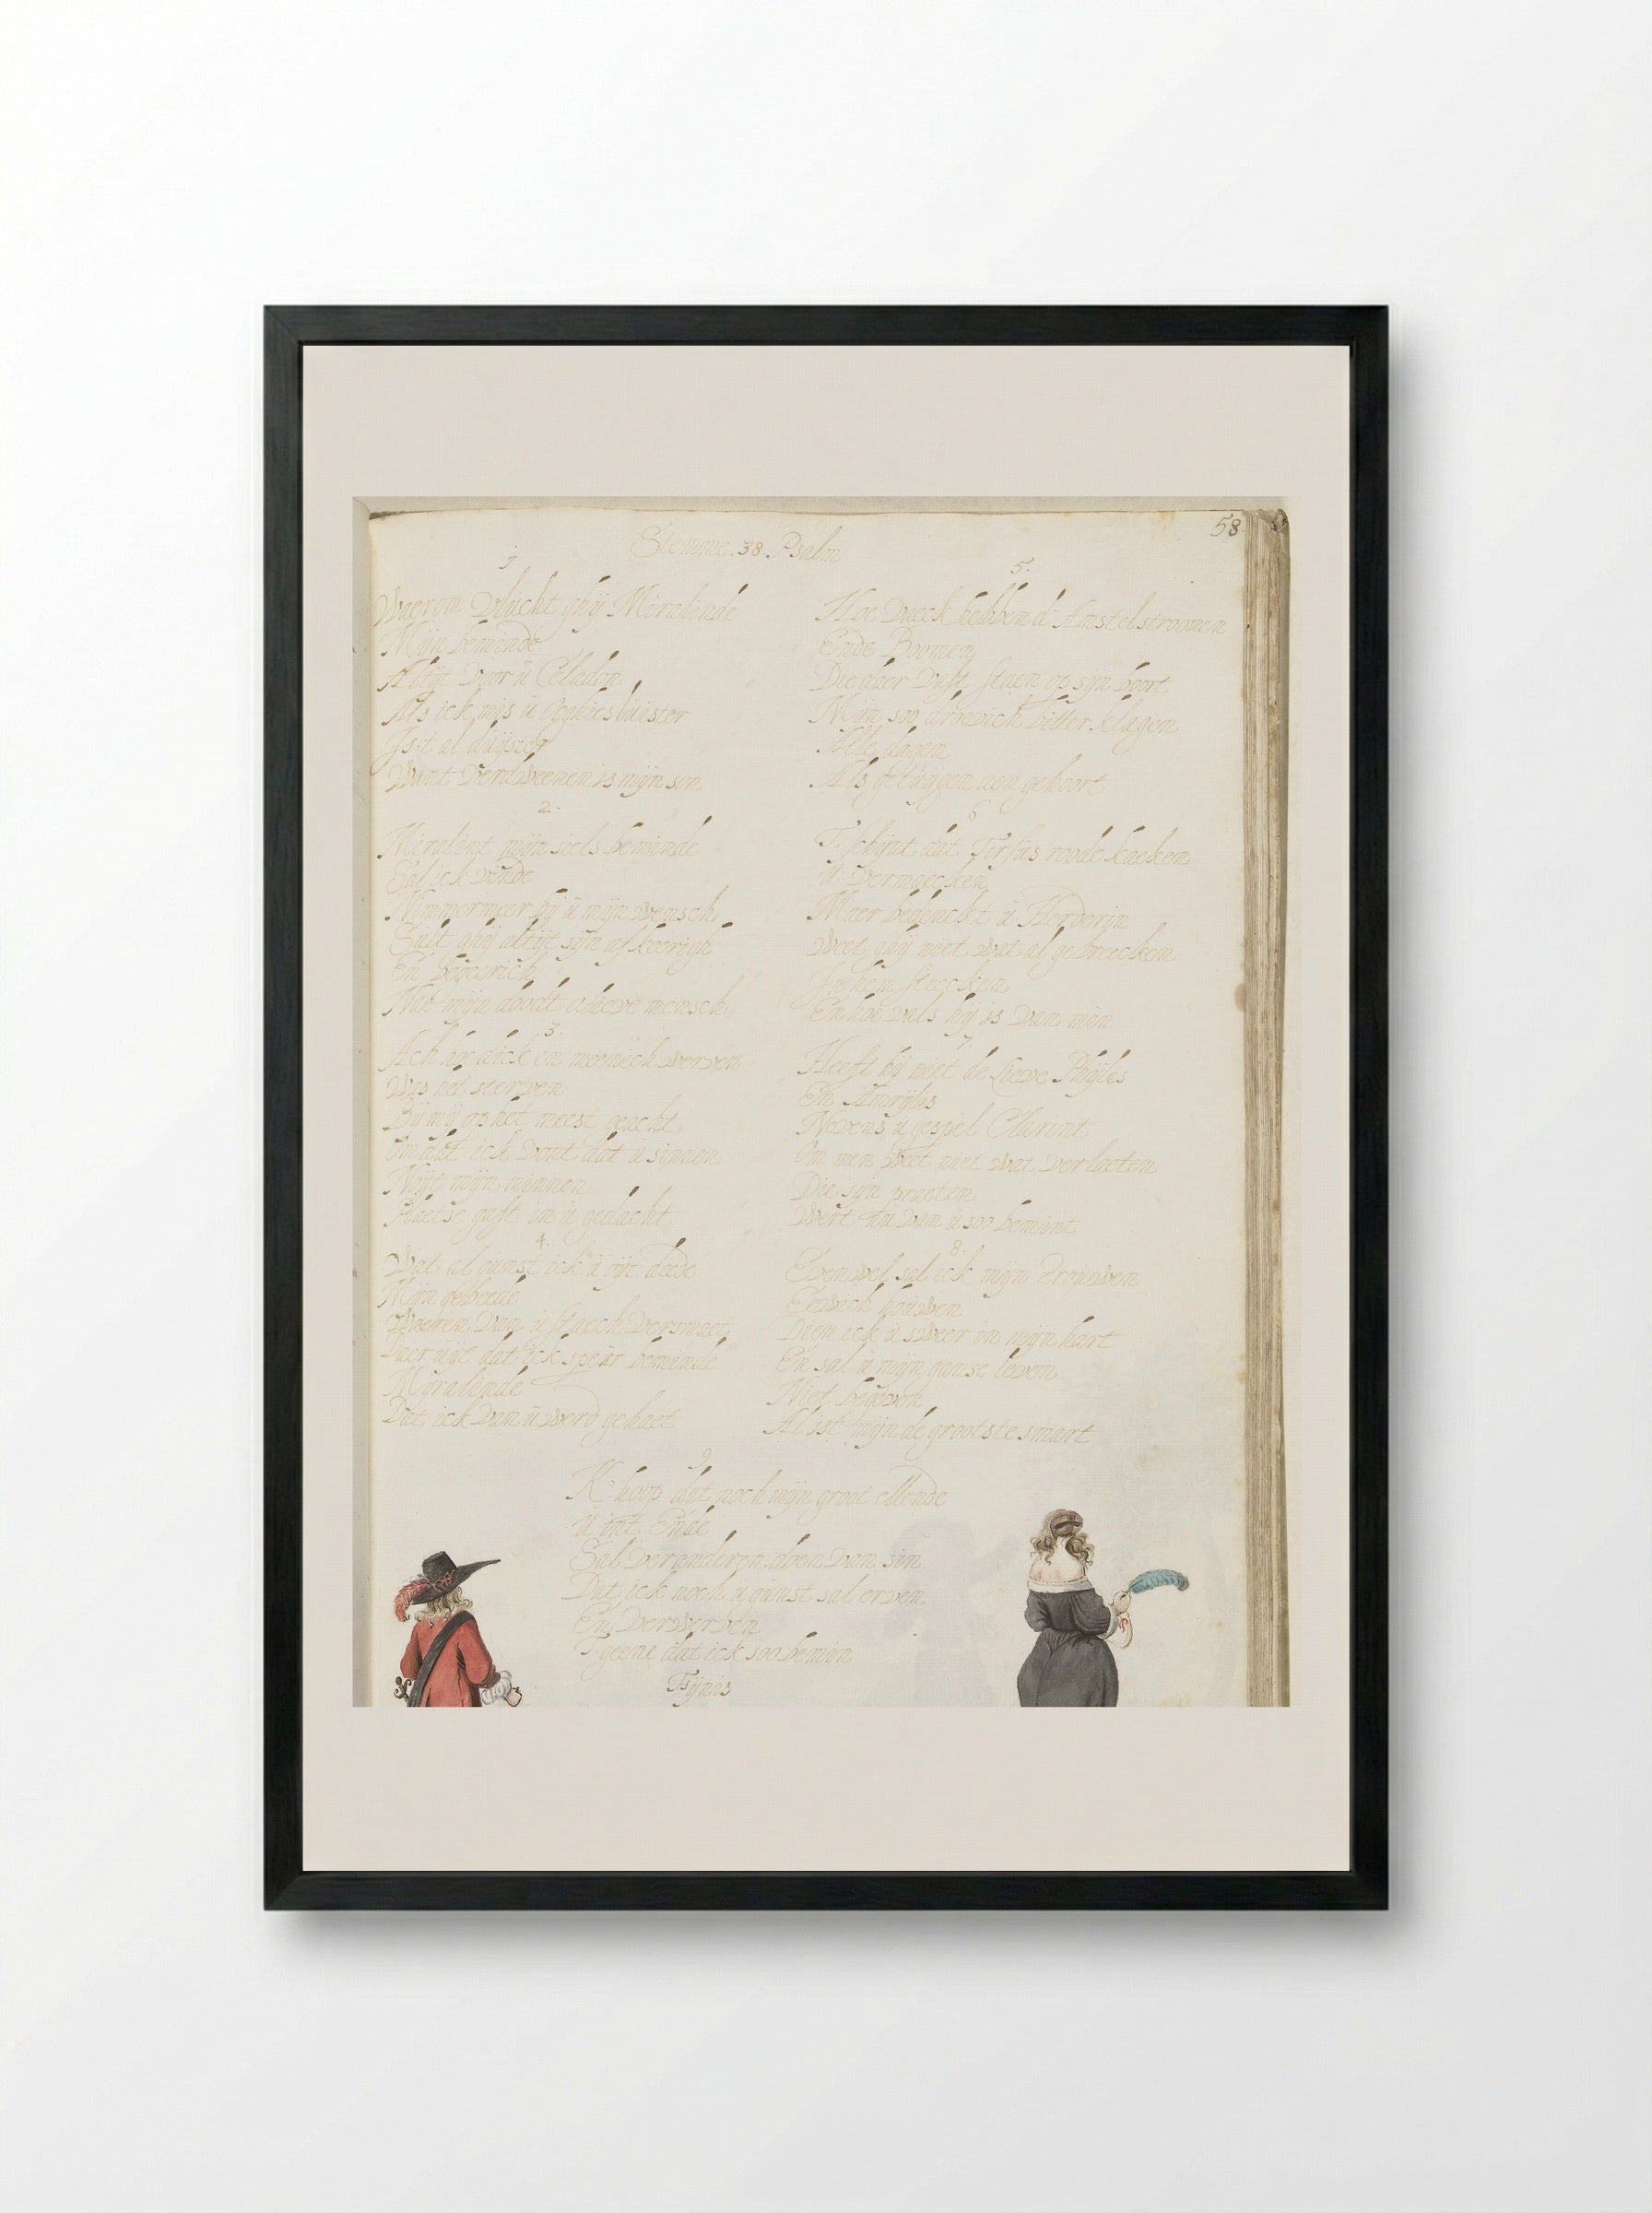 58
Stemme. 38. Psalm
1
Waerom vlucht ghij Miralinde
Mijn beminde
Altijt voor u Celadon
Als ick mis u ooghies luister
Is't al duijster
Want verdweenen is mijn son
2.
Miralint mijn siels beminde
Sal ick vinde
Nimmermeer bij u mijn wensch
Sult ghij altijt sijn afkeerigh
En begeerich
Nae mijn doodt o lieve mensch
3.
Ach hoe dick en meenich werven
Was het sterven
Bij mij op het meest geacht
Omdat ick vont dat u sinnen
Noijt mijn minnen
Plaetse gaft in u gedacht
4.
Wat al gunst ick u oijt deede
Mijn gebeede
Waeren van u steech versmaet
Daer uijt dat ick speur beminde
Miralinde
Dat ick van u werd gehaet
5.
Hoe vaeck hebben d'Amstelstroomen
Ende Boomen
Die daer vast staen op sijn boort
Mijn soo droevich bitter klagen
Alle dagen
Als getuijgen aengehoort
6
T'schijnt dat Tirsus roode kaeken
U vermaecken
Maer bedenckt u Herderin
Weet ghij niet wat al gebreecken
In hem steecken
En hoe vals hij is van min
7.
Heeft hij niet de Lieve Phijlis
En Amarijlis
Nevens u gespel Clarint
En men weet niet wat verlaeten
Die sijn praeten
Wert nu van u soo bemint
8.
Evenwel sal ick mijn Trouwen
Eewich houwen
Dien ick u sweer in mijn hart
En sal u mijn ganse leeven
Niet begeven
Al ist mijn de grootste smart
9
K'hoop dat noch mijn groot ellende
U int Ende
Sal veranderen doen van sin
Dat ick noch u gunst sal erven
En verwerven
T'geene dat ick soo bemin
Fijnis